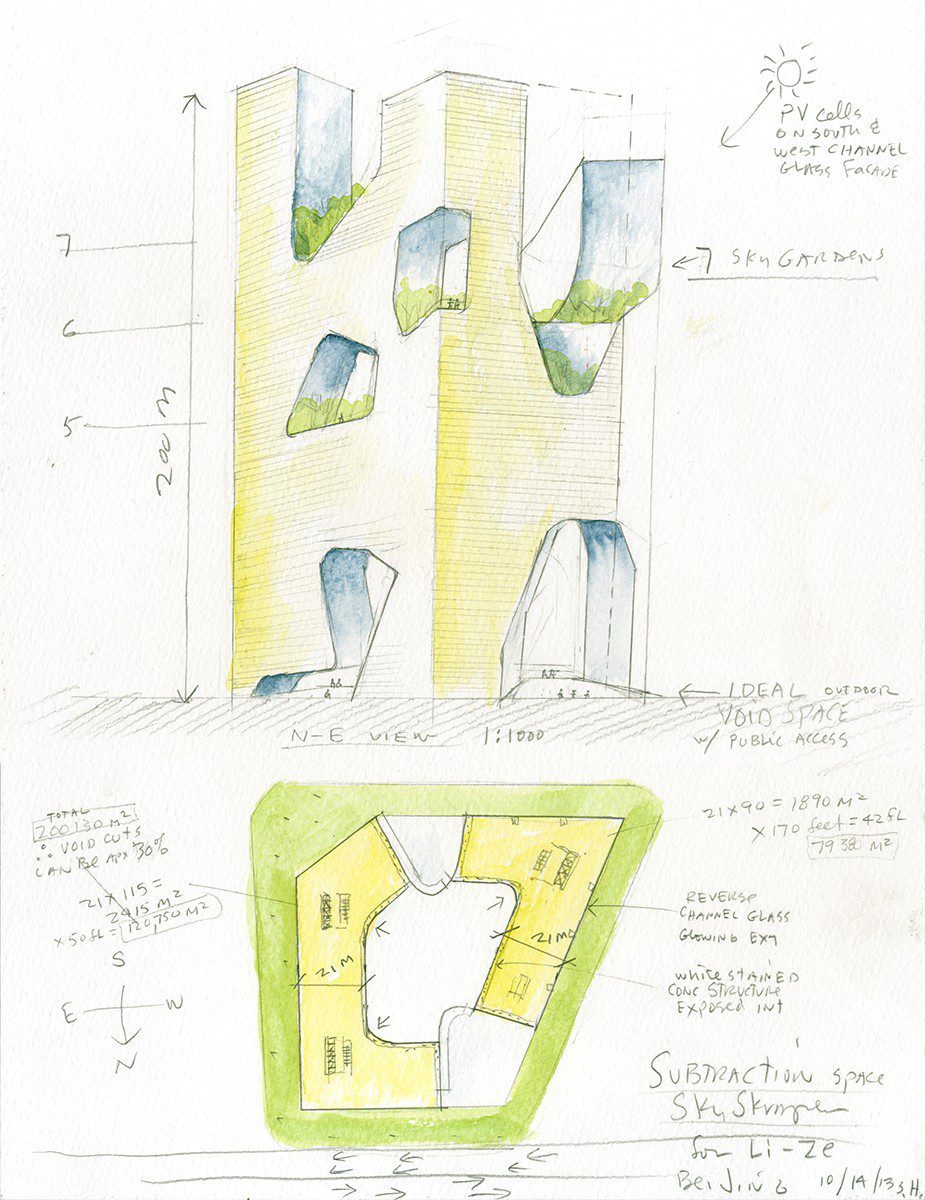 PV cells
ON SOUTH &
WEST CHANNEL
GLASS FACADE
7
6
5
200 M
7 SKY GARDENS
IDEAL OUTDOOR
VOID SPACE
w/ PUBLIC ACCESS
N-E VIEW 1:1000
TOTAL
200130 M2
∴ VOID CUTS
CAN BE APX 30%
21 x 115 =
2415 M2
x 50 fl = 120,750 M2
S
E W
N
21 M
21 M
21 x 90 = 1890 M2
x 170 feet = 42 FL
79 380 M2
REVERSE
CHANNEL GLASS
GLOWING EXT
WHITE STAINED
CONC STRUCTURE
EXPOSED INT
SUBTRACTION SPACE
SkySkraper
for Li-Ze
BeiJing 10/14/13 S.H.